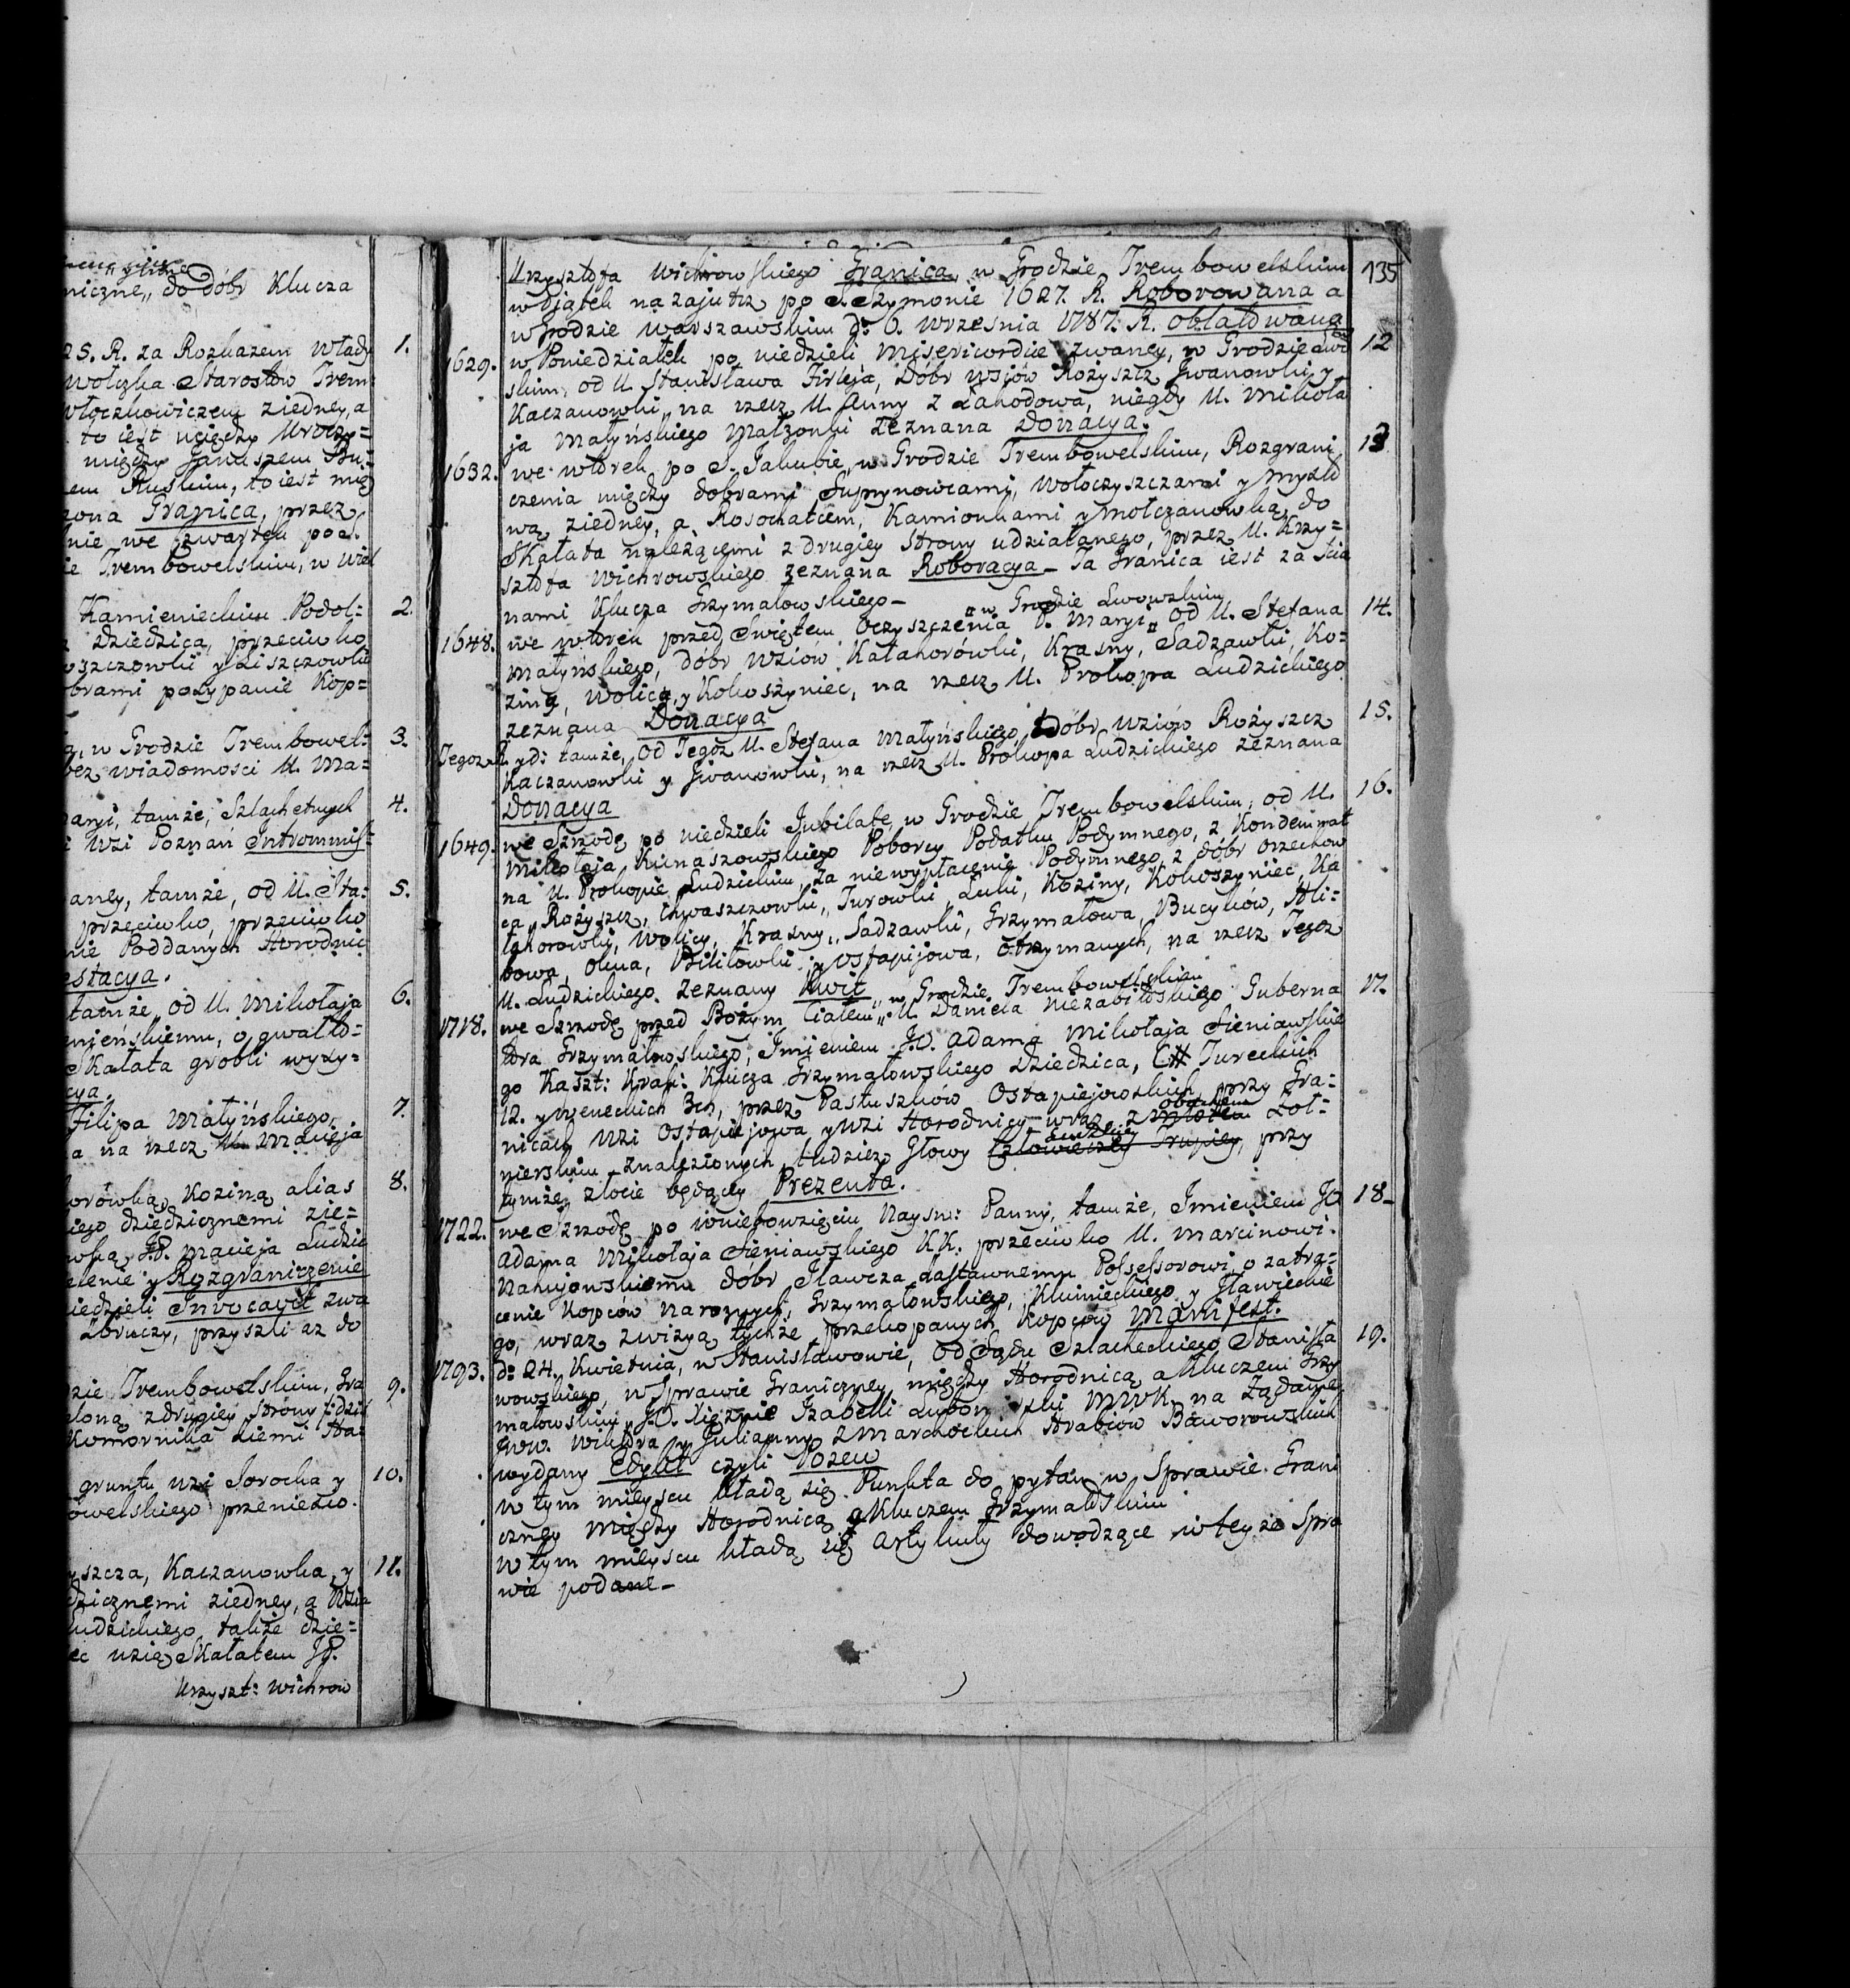 niczne,, do dóbr Klucza
25. R. za Rozkazem Włady 1.
Wołczka Starostów Trem:
Włoczkowiczem ziedney, a
to iest między Uroczy=
między Januszem Bu:
em Ruskim, to iest mię
zona Granica, przez
nie we Czwartek po S.
ie Trembowelskim, w Wiel
Kamienieckim Podol= 2.
Dziedzica, przeciwko
oszczowki y Liszczowki
obrami posypanie Kop=
w Grodzie Trembowel: 3.
bez wiadomosci U. Ma=
aryi, tamże, Szlachetnych 4.
wzi Poznań Intrommis:
aney, tamże, od U. Sta: 5.
przeciwko, przeciwko
nie Poddanych Horodnic
estacya.
tamże, od U. Mikołaja 6.
mieńskiemu, o gwałto=
Skałata grobli wysy=
cya.
Filipa Małyńskiego, 7.
a na rzecz Macieja
orówką Koziną alias 8.
iego dziedzicznemi zie=
wką, J.P. Macieja Ludzic
elenie y Rozgraniczenie
iedzieli Invocavit zwa
Zbruczy, przyszli az do
zie Trembowelskim, Gra 9.
loną, zdrugiey Strony
Komornika Ziemi Ha=
gruntu wzi Sorocka y 10.
owelskiego przeniesio.
yszcza, Kaczanowka, y 11.
dzicznemi ziedney, a Wzia
udzickiego takze dzie=
ec wzią Skałatem JP.
Krzyszt: Wichrow
135
Krzysztofa Wichrowskiego Granica, w Grodzie Trembowelskim
w Piątek nazajutrz po S. Szymonie 1627. R. Roborowana a
w Grodzie Warszawskim d: 6. Wrzesnia 1787. R. oblatowana
1629. w Poniedziałek po niedzieli Misericordiæ zwaney, w Grodzie Lwo 12
skim, od U. Stanisława Firleja, Dóbr wsiów Rożyszcz Jwanowki y
Kaczanowki, na rzecz U. Anny z Łahodowa, niegdy U. Mikoła
ja Małyńskiego Małzonki zeznana Donacya.
1632. we wtorek po S. Jakubie, w Grodzie Trembowelskim, Rozgrani 13
czenia między dobrami Supnynowcami, Wołoczyszczami y Myszko
wą ziedney, a Rosochatcem, Kamionkami y Mołczanowką, do
Skałata należącemi z drugiey Strony udziałanego, przez U. Krzy=
sztofa Wichrowskiego zeznana Roboracya - Ta Granica iest za Scia
nami Klucza Grzymałowskiego -
„ w Grodzie Lwowskim
1648. we wtorek przed Swiętem Oczyszczenia P. Maryi „ od U. Stefana 14.
Małyńskiego, dóbr wziów Kałaharówki, Krasny, Sadzawki, Ko=
ziny, Wolicy, y Kokoszyniec, na rzecz U. Prokopa Ludzickiego
zeznana Donacya
Tegoż R. y d: tamże, od Tegoż U. Stefana Małyńskiego, Dóbr wziów Rożyszcz 15.
Kaczanowki y Jwanowki, na rzecz U. Prokopa Ludzickiego zeznana
Donacya
1649. we Szrodę po niedzieli Jubilate, w Grodzie Trembowelskim, od U. 16.
Mikołaja Kunaszowskiego Poborcy Podatku Podymnego, z Kondemnat
na U. Prokopie Ludzickim, za niewypłacenie Podymnego, z dóbr Orzechow
ca, Rożyszcz, Iwaszczowki, Turowki, Luki, Koziny, Kokoszyniec, Ka
łahorowki, Wolicy, Krasny, Sadzawki, Grzymałowa, Bucyków, Hli=
bowa, Okna, Bilitowki y Ostapijowa, otrzymanych, na rzecz Tegoz
U. Ludzickiego zeznany Kwit
„ w Grodzie Trembowelskim
1718. we Szrodę przed Bożym Ciałem „ U. Daniela Niezabitowskiego Guberna 17.
tora Grzymałowskiego, Jmieniem J.O. Adama Mikołaja Sieniawskie
go Kaszt: Krak: Klucza Grzymałowskiego Dziedzica, CH Tureckich
12. y Weneckich 3ch, przez Pastuszków Ostapiejowskich przy Gra=
nicach wzi Ostapiejowa y wzi Horodnicy wraz z Młotem Żoł=
nierskim znalezionych, tudziez Głowy Człowieczey Trupiey, przy
tymże złocie będącey Prezenta.
1722. we Szrodę po Wniebowzięciu Nayśw: Panny, tamże, Jmieniem JO 18-
Adama Mikołaja Sieniawskiego K.K. przeciwko U. Marcinowi
Nahujowskiemu dóbr Iławcza zastawnemu Possessorowi, o zatra=
cenie Kopców narożnych, Grzymałowskiego, Klimieckiego y Iławieckie
go, wraz zwizyą tychże przekopanych kopców Manifest.
1793. d: 24. Kwietnia, w Stanisławowie, od Sądu Szlacheckiego Stanisła 19.
wowskiego, w Sprawie Graniczney między Horodnicą a Kluczem Grzy
małowskim, J.O. Xiężnie Izabelli Lubomirski MWK. na żądanie
JWW. Wiktora y Julianny z Marchockich Hrabiow Baworowskich
wydany Edykt czyli Pozew
w tym mieyscu kładą się Punkta do pytań w Sprawie Grani
czney między Horodnicą a Kluczem Grzymałowskim
w tym mieyscu kładą się Artykuły dowodzące w teyże Spra
wie podane -